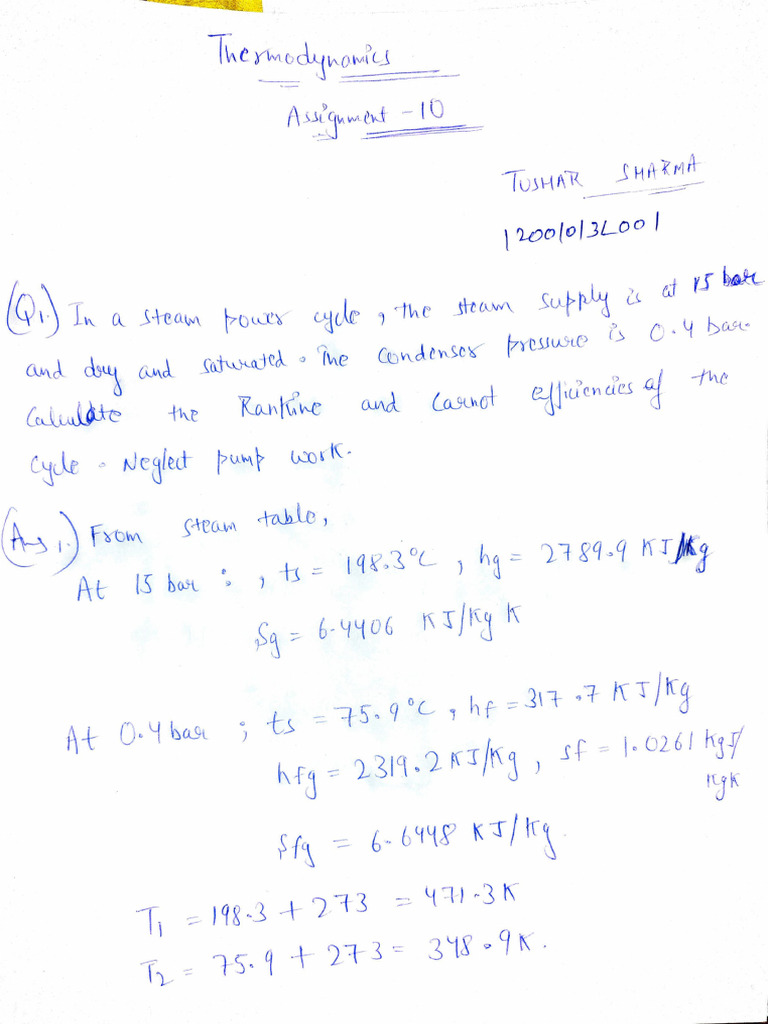 Thermodynamics
Assignment - 10
TUSHAR SHARMA
12001013L001
(Q1.) In a steam power cycle, the steam supply is at 15 bar
and dry and saturated. The condenser pressure is 0.4 bar.
Calculate the Rankine and Carnot efficiencies of the
cycle. Neglect pump work.
(Ans 1.) From steam table,
At 15 bar :, ts = 198.3°C, hg = 2789.9 KJ/Kg
Sg = 6.4406 KJ/Kg K
At 0.4 bar ; ts = 75.9°C, hf = 317.7 KJ/Kg
hfg = 2319.2 KJ/Kg, sf = 1.0261 KgJ/
KgK
Sfg = 6.6448 KJ/Kg.
T1 = 198.3 + 273 = 471.3K
T2 = 75.9 + 273 = 348.9K.